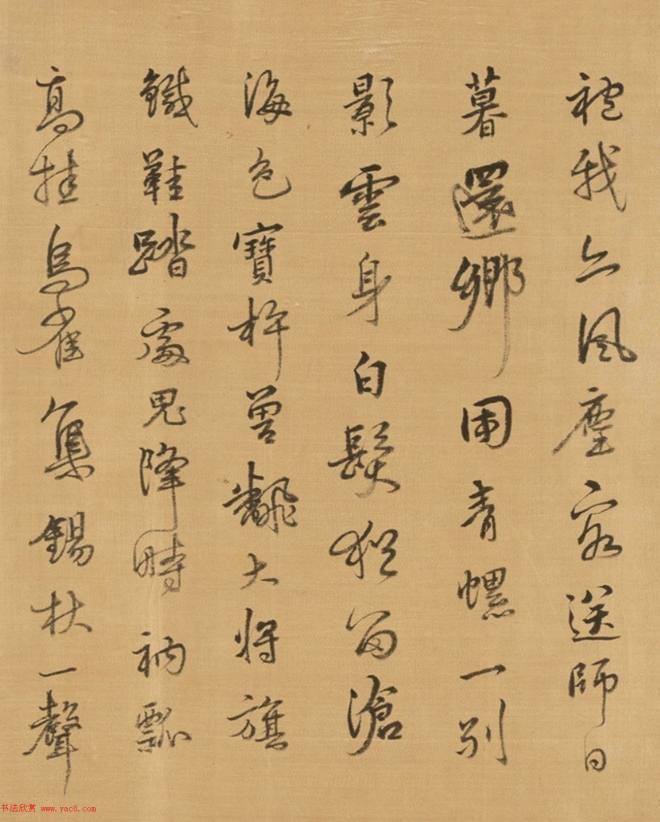 袍我亦風塵客送師日
暮還鄉關青螺一別
影雲身白髮猶留滄
海色寶杵曾翻大將旗
鐵鞋踏處鬼降時衲瓢
高挂鳥雀集錫杖一聲
书法欣赏 www.yac8.com